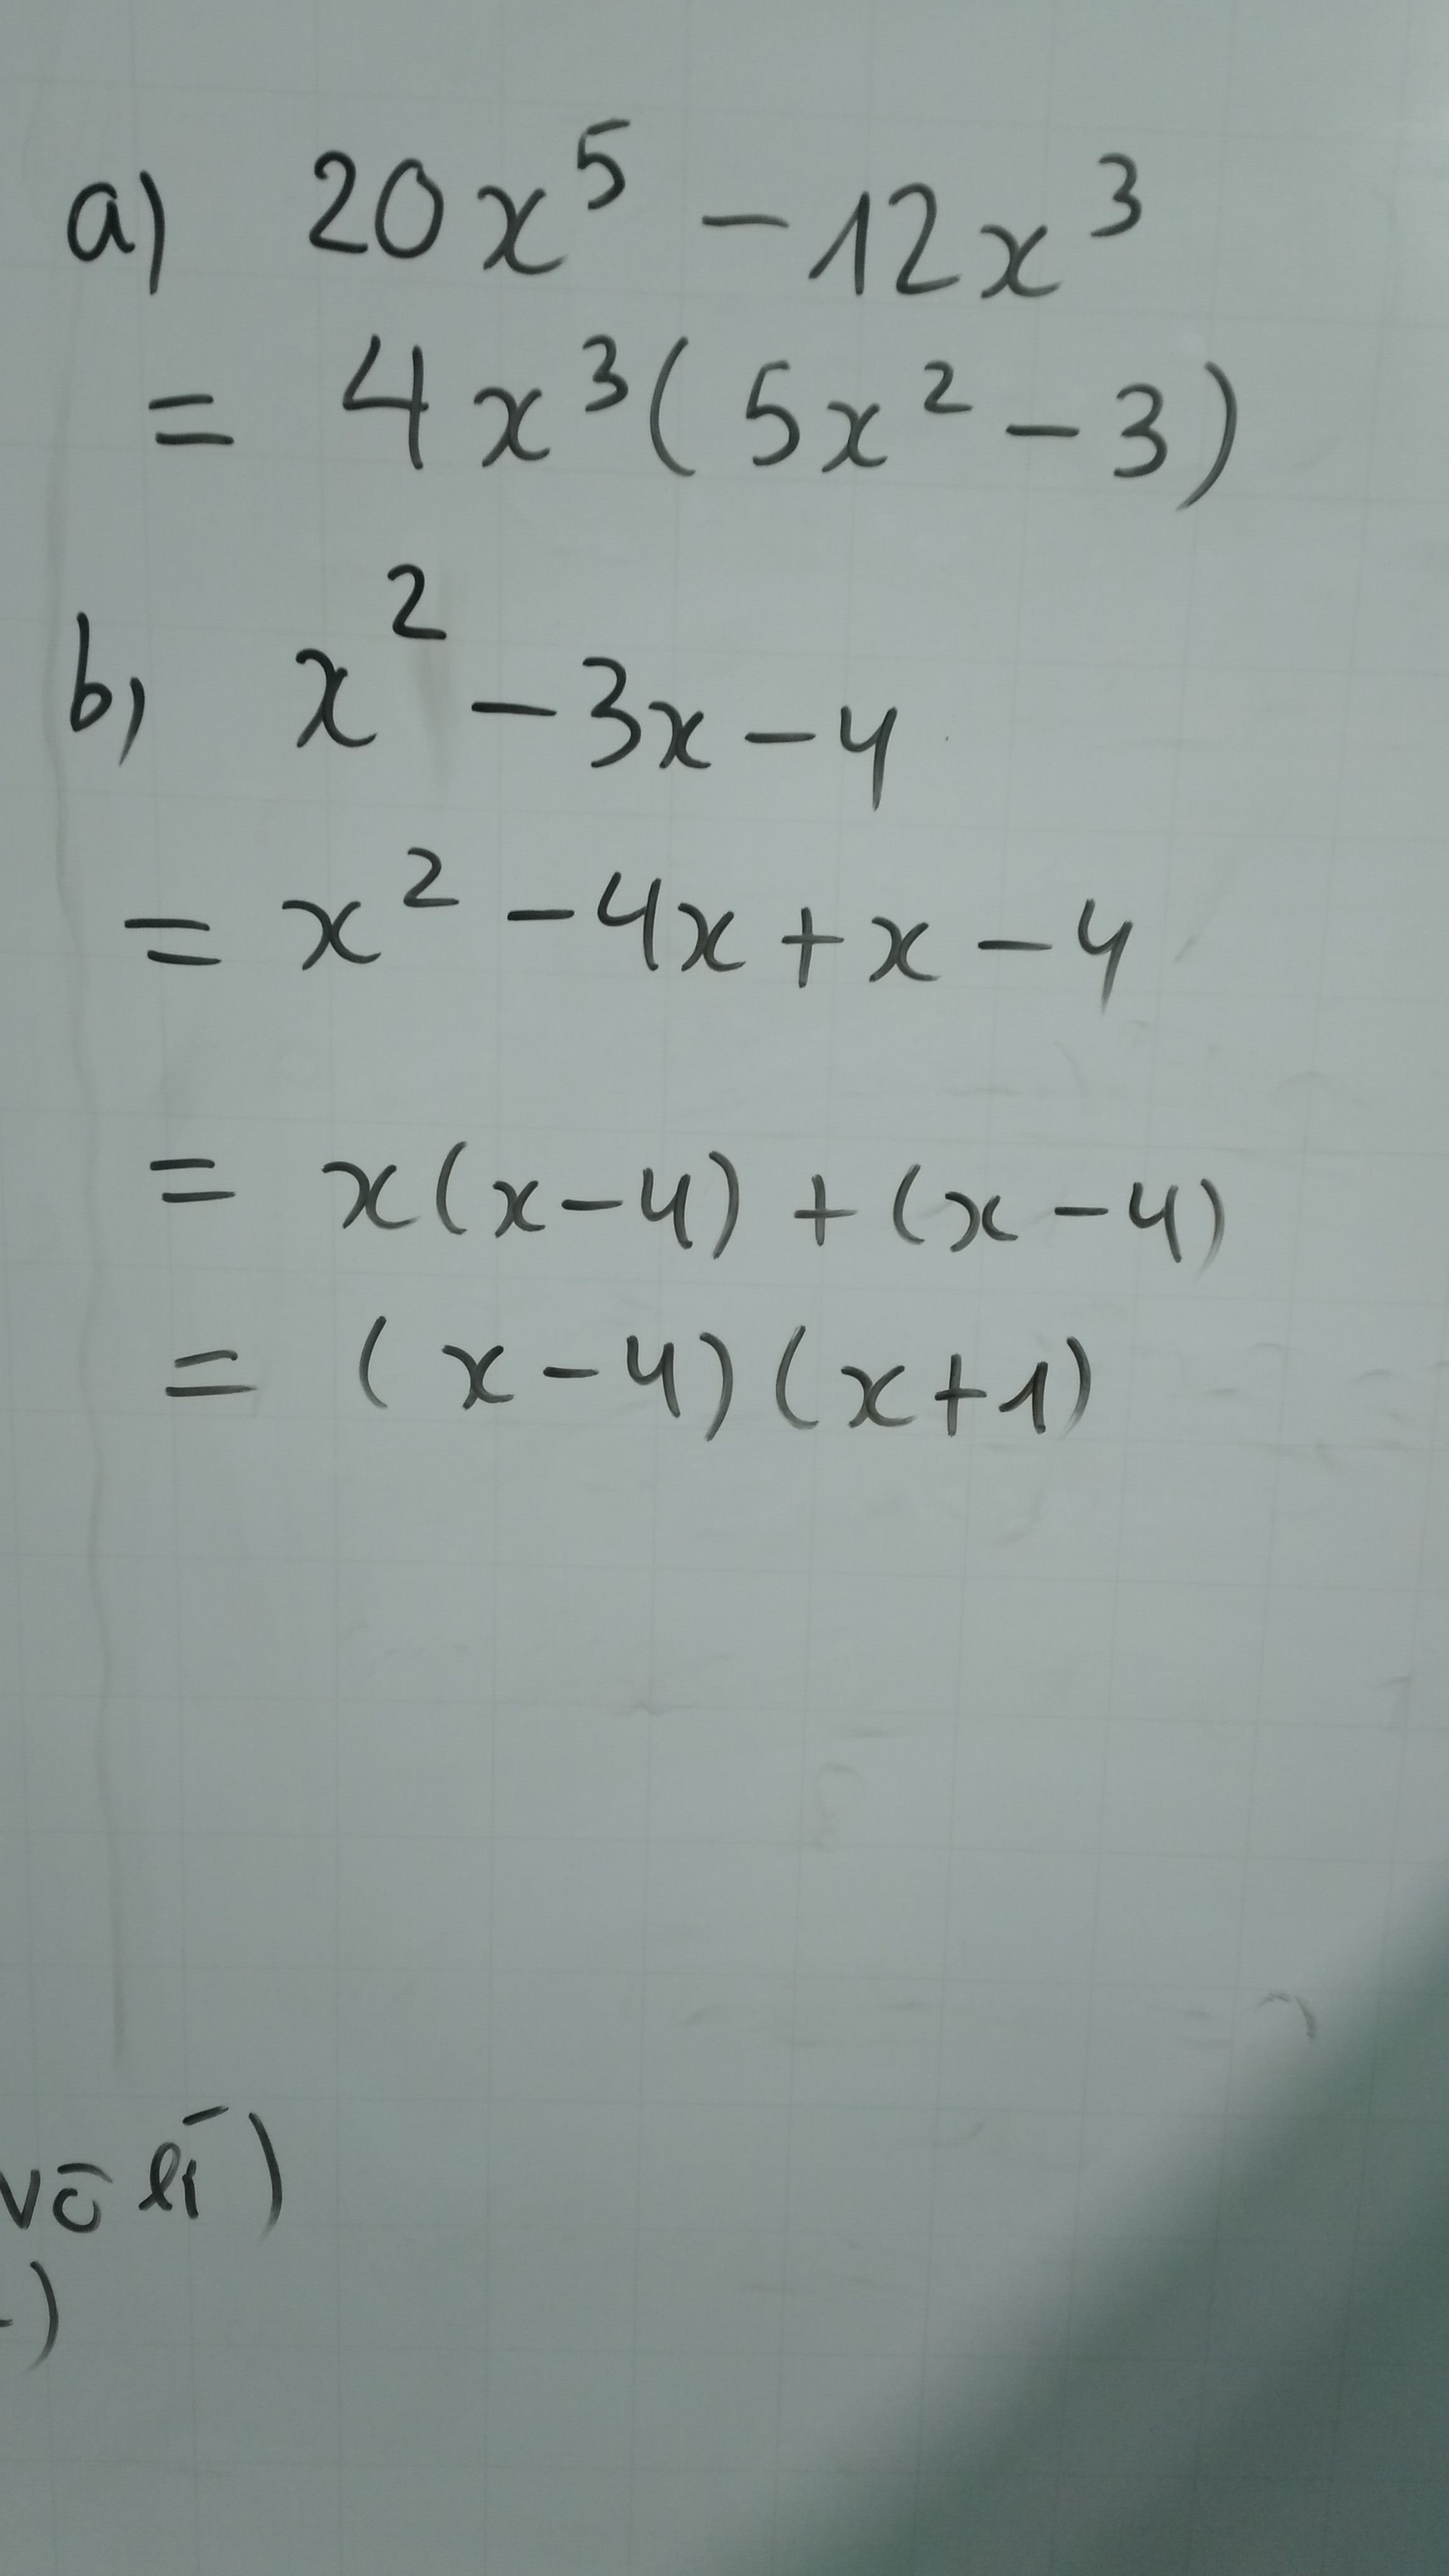 a) 20x⁵ - 12x³
= 4x³( 5x² - 3)
b) x² - 3x - 4
= x² - 4x + x - 4
= x(x - 4) + (x - 4)
= (x - 4)(x + 1)
vô lí)
-)